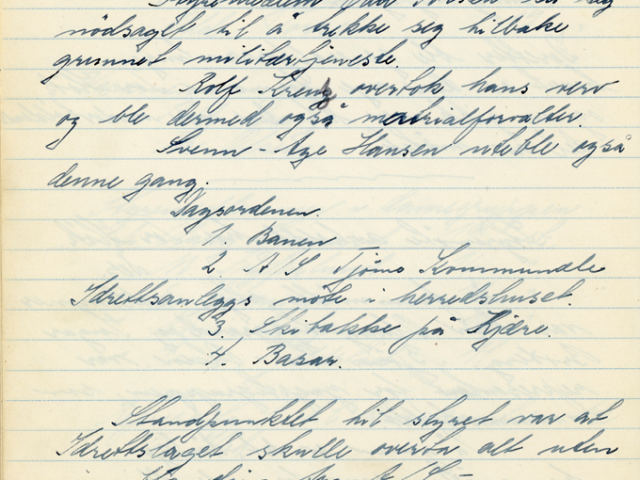 nödsaget til å trekke seg tilbake
grunnet militærtjeneste.
Rolf Krenz overtok hans verv
og ble dermed også materialforvalter.
Svenn-Åge Hansen uteble også
denne gang.
Dagsordenen.
1. Banen
2. A/S Tjöme Kommunale
Idrettsanleggs möte i herredshuset.
3. Skibakke på Kjære.
4. Basar.
Standpunktet til styret var at
Idrettslaget skulle overta alt uten